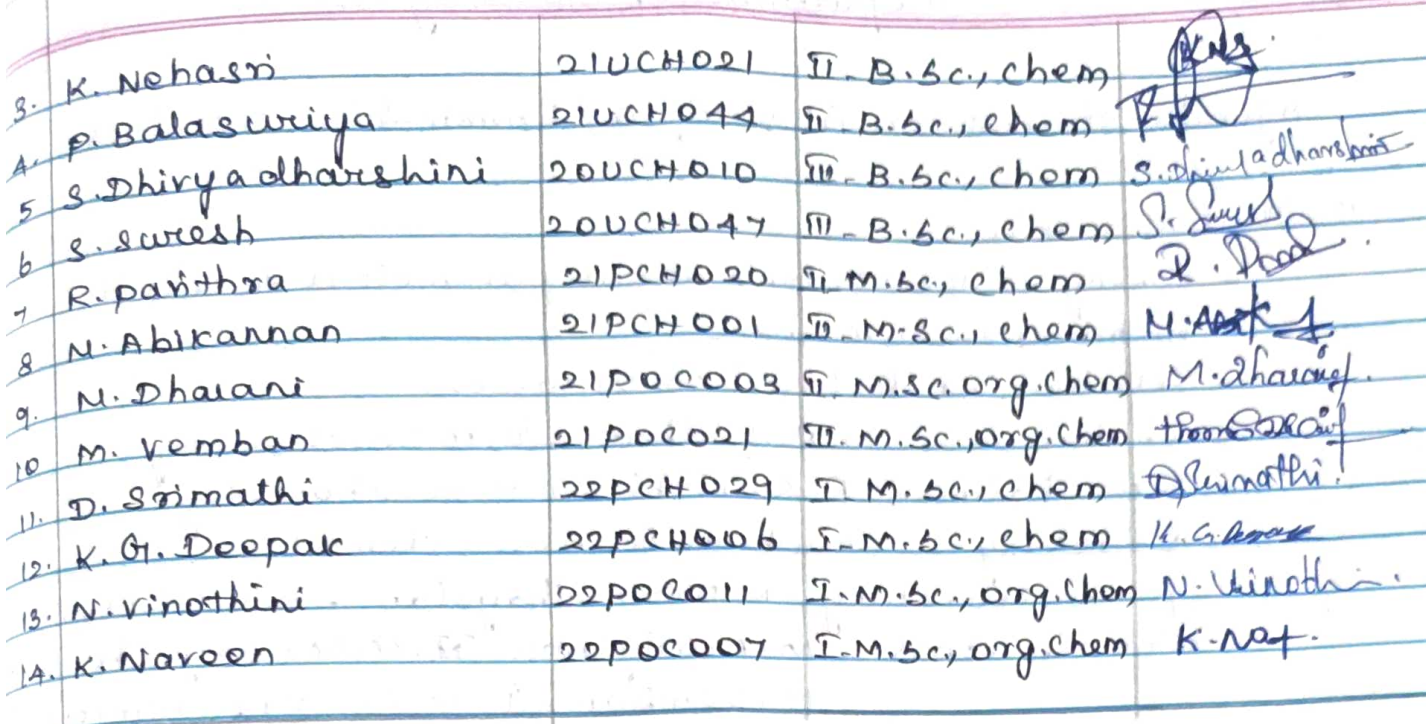 3. K. Nehasri 21UCH021 II - B.Sc., Chem KNS.
4. P. Balasuriya 21UCH044 II - B.Sc., Chem
5 S. Dhivyadharshini 20UCH010 III - B.Sc., Chem S. Dhivyadharshini
6 S. Suresh 20UCH047 III - B.Sc., Chem S. Suresh
7 R. Pavithra 21PCH020 II M.Sc., Chem
8 M. Abikannan 21PCH001 II - M.Sc., Chem
9. M. Dharani 21POC003 II M.Sc. org. Chem M. Dharani
10 M. Vemban 21POC021 II. M.Sc., org. Chem
11. D. Srimathi 22PCH029 I M.Sc., Chem D. Srimathi
12. K. G. Deepak 22PCH006 I - M.Sc., Chem
13. N. Vinothini 22POC011 I. M.Sc., org. Chem
14. K. Naveen 22POC007 I - M.Sc., org. Chem